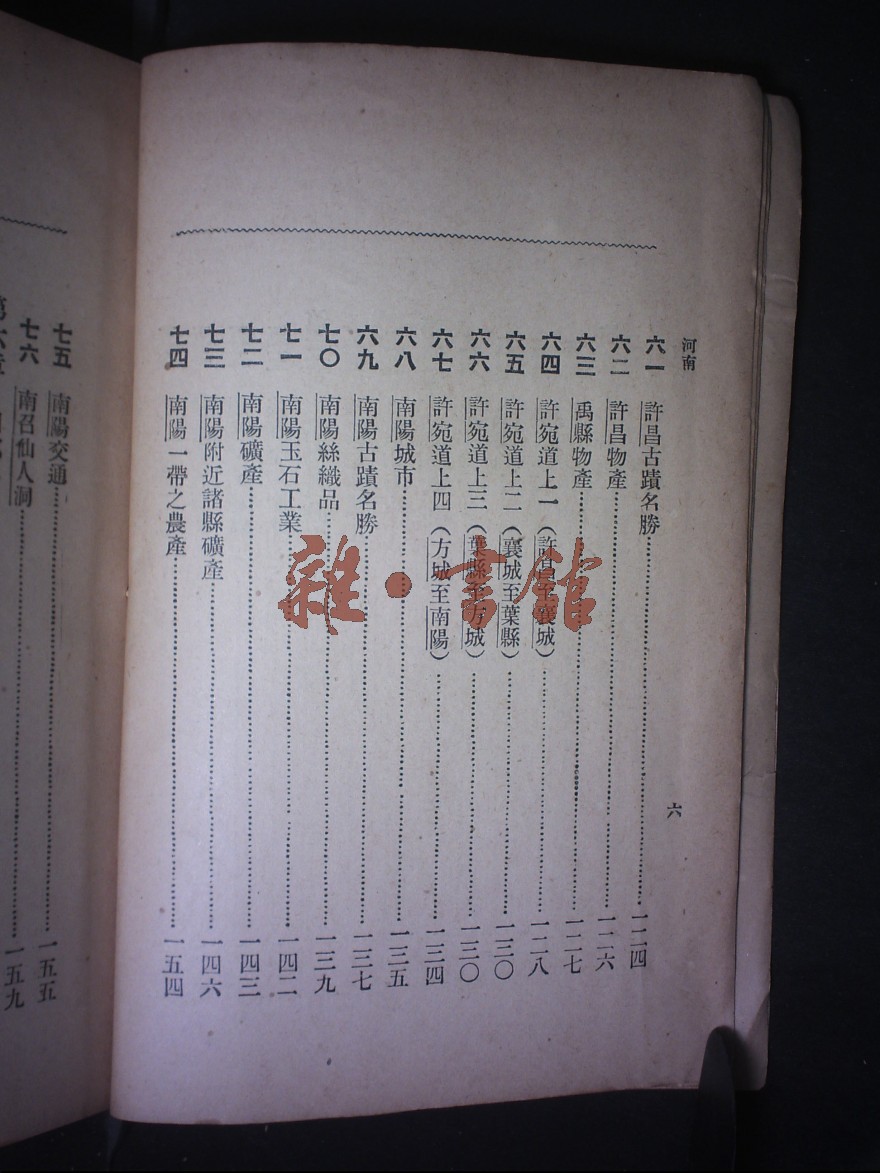 河南
六
六一 許昌古蹟名勝…………一二四
六二 許昌物產…………一二六
六三 禹縣物產…………一二七
六四 許宛道上一(許昌至襄城)…………一二八
六五 許宛道上二(襄城至葉縣)…………一三〇
六六 許宛道上三(葉縣至方城)…………一三〇
六七 許宛道上四(方城至南陽)…………一三四
六八 南陽城市…………一三五
六九 南陽古蹟名勝…………一三七
七〇 南陽絲織品…………一三九
七一 南陽玉石工業…………一四二
七二 南陽礦產…………一四三
七三 南陽附近諸縣礦產…………一四六
七四 南陽一帶之農產…………一五四
七五 南陽交通…………一五五
七六 南召仙人洞…………一五九
第六章
雜·書館